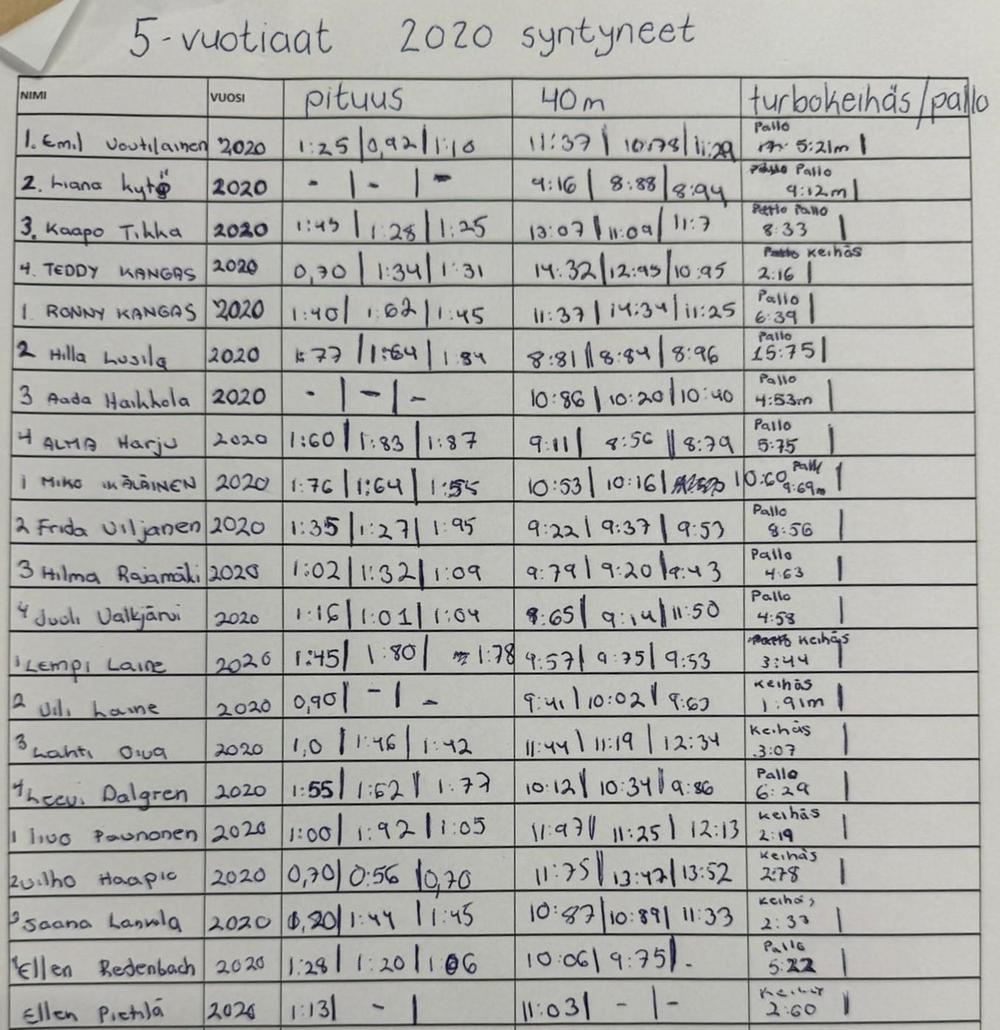 5-vuotiaat 2020 syntyneet
NIMI VUOSI pituus 40m turbokeihäs/pallo
1. Emil Voutilainen 2020 1:25 | 0,92 | 1:10 11:37 | 10:78 | 11:29 Pallo 5:21m |
2. Liana Kytö 2020 - | - | - 9:16 | 8:88 | 8:94 Pallo 9:12m |
3. Kaapo Tikka 2020 1:45 | 1:28 | 1:25 13:07 | 11:09 | 11:7 Pallo 8:33 |
4. TEDDY KANGAS 2020 0,70 | 1:34 | 1:31 14:32 | 12:95 | 10:95 Keihäs 2:16 |
1 RONNY KANGAS 2020 1:40 | 1:62 | 1:45 11:37 | 14:34 | 11:25 Pallo 6:39 |
2 Hilla Lusila 2020 1:77 | 1:64 | 1:84 8:81 | 8:84 | 8:96 Pallo 15:75 |
3 Aada Haikkola 2020 - | - | - 10:86 | 10:20 | 10:40 Pallo 4:53m |
4 ALMA Harju 2020 1:60 | 1:83 | 1:87 9:11 | 8:56 | 8:79 Pallo 5:75 |
1 MIKO IKÄLÄINEN 2020 1:76 | 1:64 | 1:55 10:53 | 10:16 | 10:60 Pallo 9:69m |
2 Frida Viljanen 2020 1:35 | 1:27 | 1:95 9:22 | 9:37 | 9:53 Pallo 8:56 |
3 Hilma Rajamäki 2020 1:02 | 1:32 | 1:09 9:79 | 9:20 | 9:43 Pallo 4:63 |
4 Juuli Valkjärvi 2020 1:16 | 1:01 | 1:04 8:65 | 9:14 | 11:50 Pallo 4:58 |
1 LEMPI Laine 2020 1:45 | 1:80 | 1:78 9:57 | 9:75 | 9:53 Keihäs 3:44 |
2 Vili Laine 2020 0,90 | - | - 9:41 | 10:02 | 9:63 Keihäs 1:91m |
3 Lahti Oiva 2020 1,0 | 1:46 | 1:42 11:44 | 11:19 | 12:34 Keihäs 3:07 |
4 Leevi Dalgren 2020 1:55 | 1:62 | 1:77 10:12 | 10:34 | 9:86 Pallo 6:29 |
1 Iivo Paunonen 2020 1:00 | 1:92 | 1:05 11:97 | 11:25 | 12:13 Keihäs 2:19 |
2 Vilho Haapio 2020 0,70 | 0:56 | 0,70 11:75 | 13:47 | 13:52 Keihäs 2:78 |
3 Saana Lankola 2020 0,20 | 1:44 | 1:45 10:87 | 10:89 | 11:33 Keihäs 2:37 |
Ellen Redenbach 2020 1:28 | 1:20 | 1:06 10:06 | 9:75 | - Pallo 5:22 |
Ellen Pietilä 2020 1:13 | - | 11:03 | - | - Keihäs 2:60 |